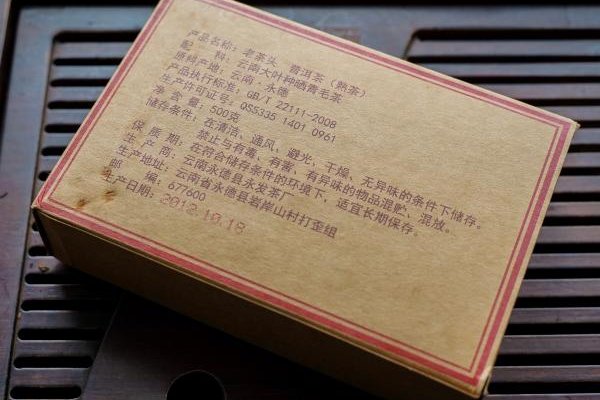 产品名称：老茶头 普洱茶（熟茶）
配 料：云南大叶种晒青毛茶
原料产地：云南．永德
产品执行标准：GB/T 22111-2008
生产许可证号：QS5335 1401 0961
净 含 量：500克
储存条件：在清洁、通风、避光、干燥、无异味的条件下储存。
禁止与有毒、有害、有异味的物品混贮、混放。
保 质 期：在符合储存条件的环境下，适宜长期保存。
生 产 商：云南永德县永发茶厂
生产地址：云南省永德县岩岸山村打歪组
邮 编：677600
生产日期：2012.10.18